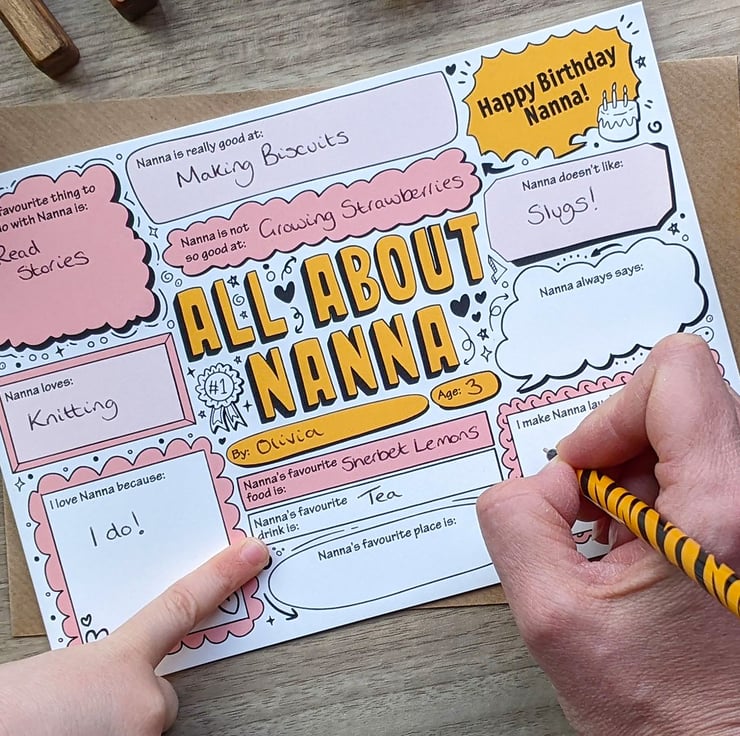 Happy Birthday
Nanna!
Nanna is really good at:
Making Biscuits
favourite thing to
do with Nanna is:
Read
Stories
Nanna is not
so good at:
Growing Strawberries
Nanna doesn't like:
Slugs!
ALL ABOUT
NANNA
#1
Nanna always says:
Nanna loves:
Knitting
By: Olivia
Age: 3
I make Nanna
I love Nanna because:
I do!
Nanna's favourite
food is:
Sherbet Lemons
Nanna's favourite
drink is:
Tea
Nanna's favourite place is: